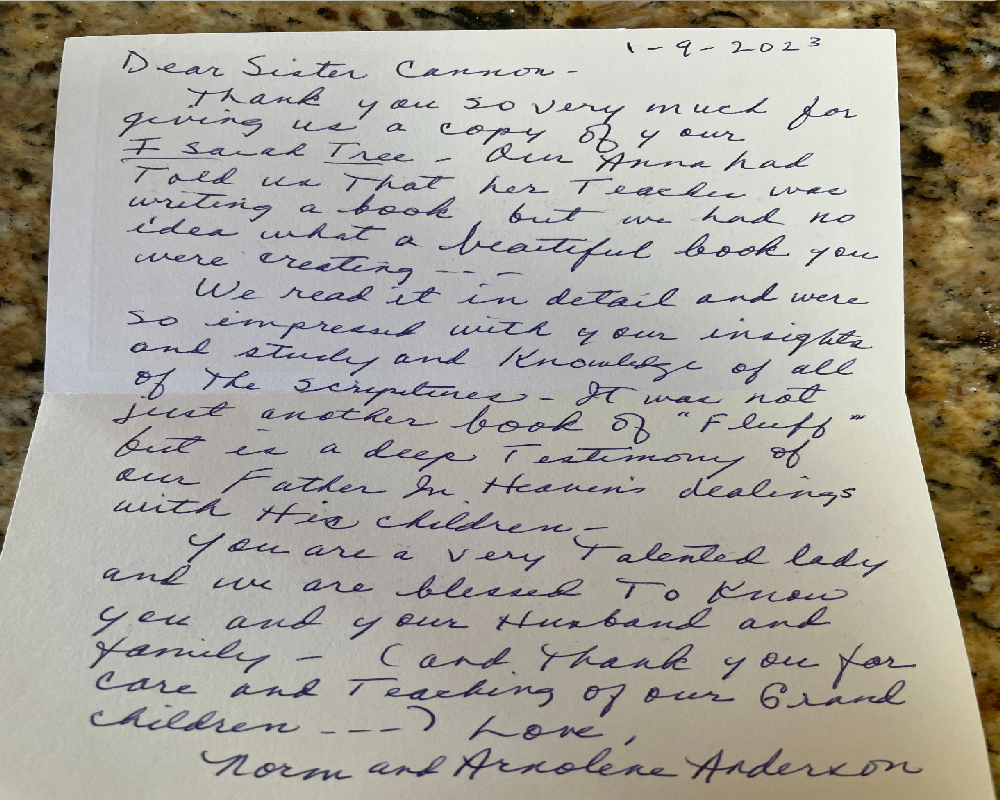 1-9-2023
Dear Sister Cannon-
Thank you so very much for
giving us a copy of your
Isaiah Tree - Our Anna had
Told us That her Teacher was
writing a book but we had no
idea what a beautiful book you
were creating ---
We read it in detail and were
so impressed with your insights
and study and Knowledge of all
of The scriptures - It was not
just another book of "Fluff"
but is a deep Testimony of
our Father In Heaven's dealings
with His children-
You are a very Talented lady
and we are blessed To Know
you and your Husband and
family - (and Thank you for
care and Teaching of our Grand
children ---) Love,
Norm and Arnolene Anderson